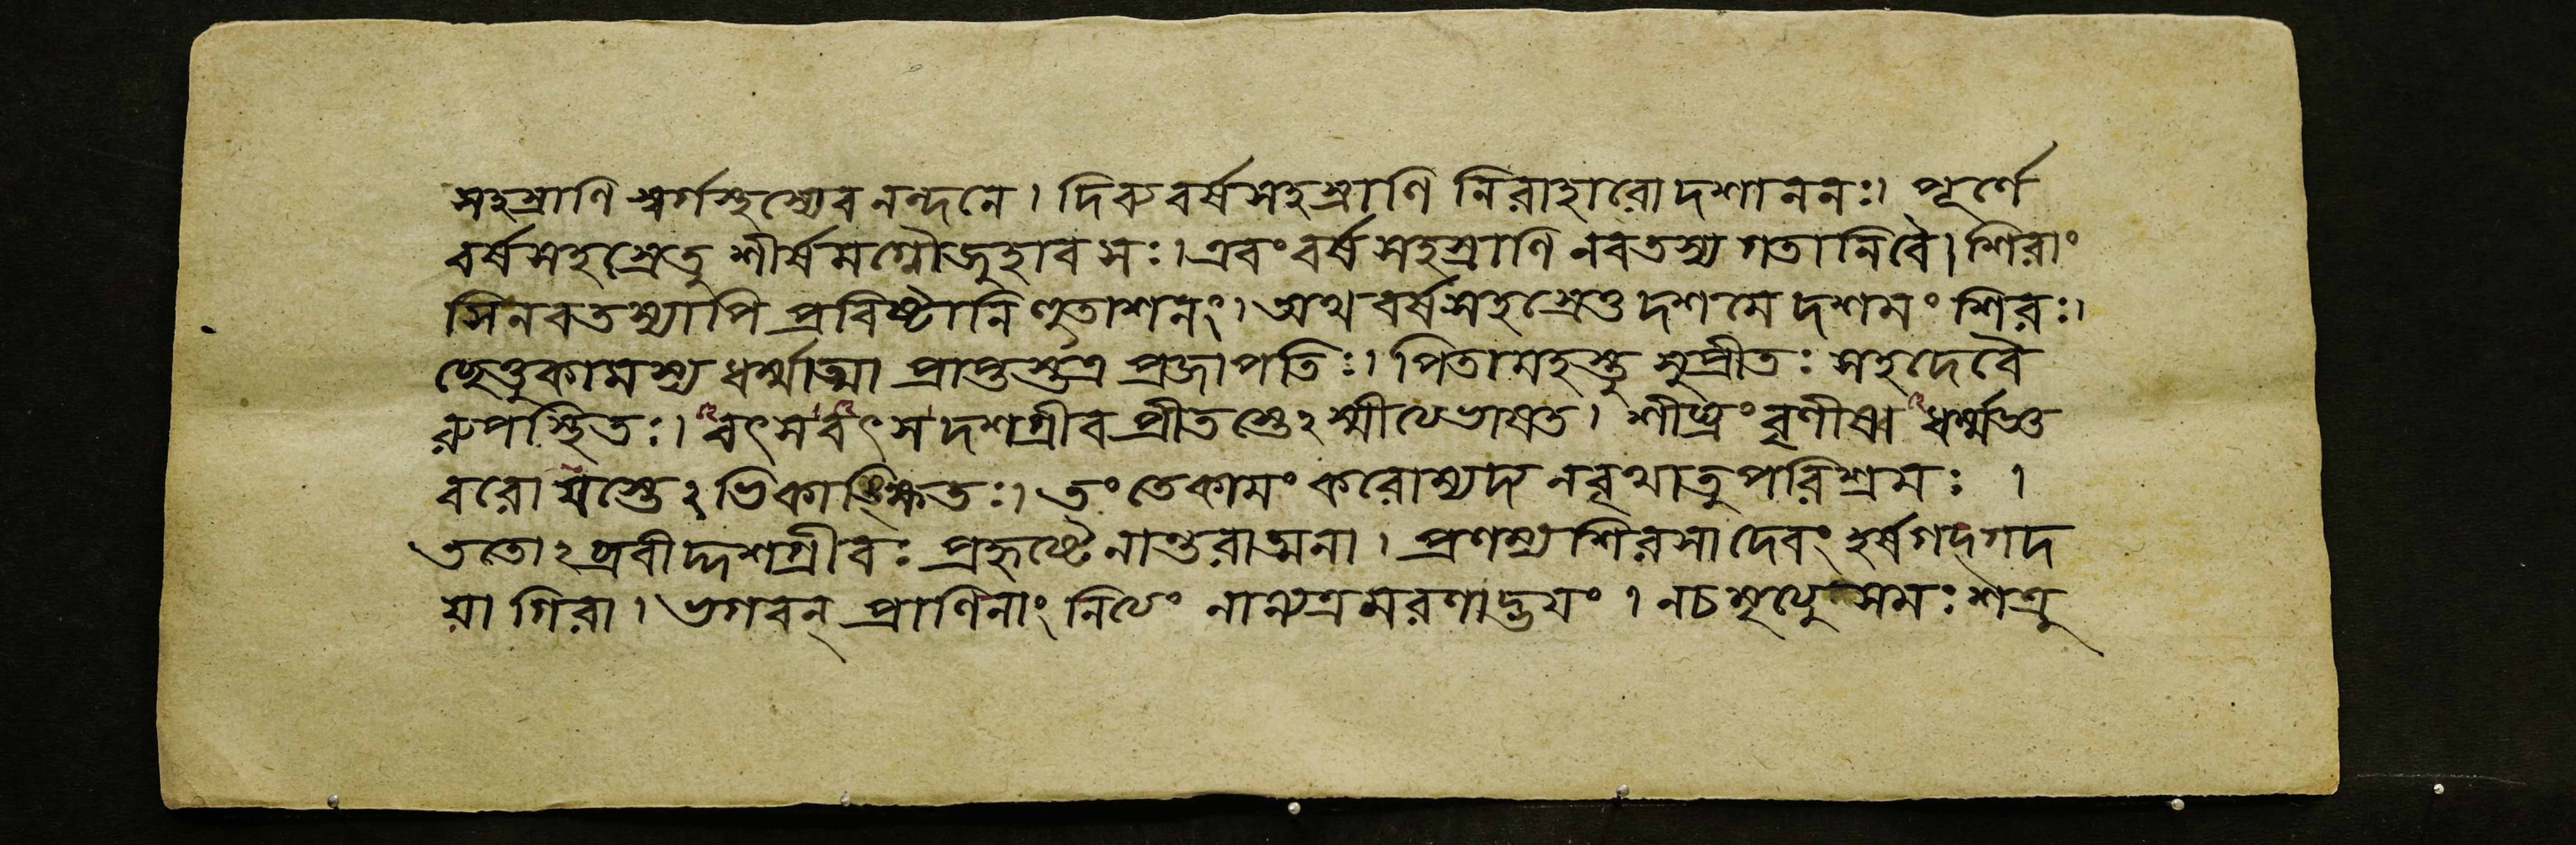 সহস্রাণি স্বর্গস্থস্যেব নন্দনে। দিব্য বর্ষসহস্রাণি নিরাহারো দশাননঃ। পূর্ণে
বর্ষসহস্রেতু শীর্ষমগ্নৌ জুহাব সঃ। এবং বর্ষ সহস্রাণি নবতস্য গতানিবৈ। শিরাং
সি নবতস্যাপি প্রবিষ্টানি হুতাশনং। অথ বর্ষসহস্রেতু দশমে দশমং শিরঃ।
ছেত্তুকামস্য ধর্ম্মাত্মা প্রাপ্তস্তত্র প্রজাপতিঃ। পিতামহস্তু সুপ্রীতঃ সহদেবৈ
রুপস্থিতঃ। বৎস বৎস দশগ্রীব প্রীতস্তেঽস্মীত্যেভাষত। শীঘ্রং বৃণীষ্ব ধর্ম্মজ্ঞ
বরোযস্তেঽভিকাঙ্ক্ষিতঃ। তং তেকামং করোম্যদ্য নবৃথাতু পরিশ্রমঃ ।
ততোঽব্রবীদ্দশগ্রীবঃ প্রহৃষ্টেনান্তরাত্মনা। প্রণম্য শিরসা দেবং হর্ষগদ্গদ
য়া গিরা। ভগবন্ প্রাণিনাং নিত্যং নান্যত্র মরণাদ্ভয়ং । নচ মৃত্যু সমঃ শত্রু